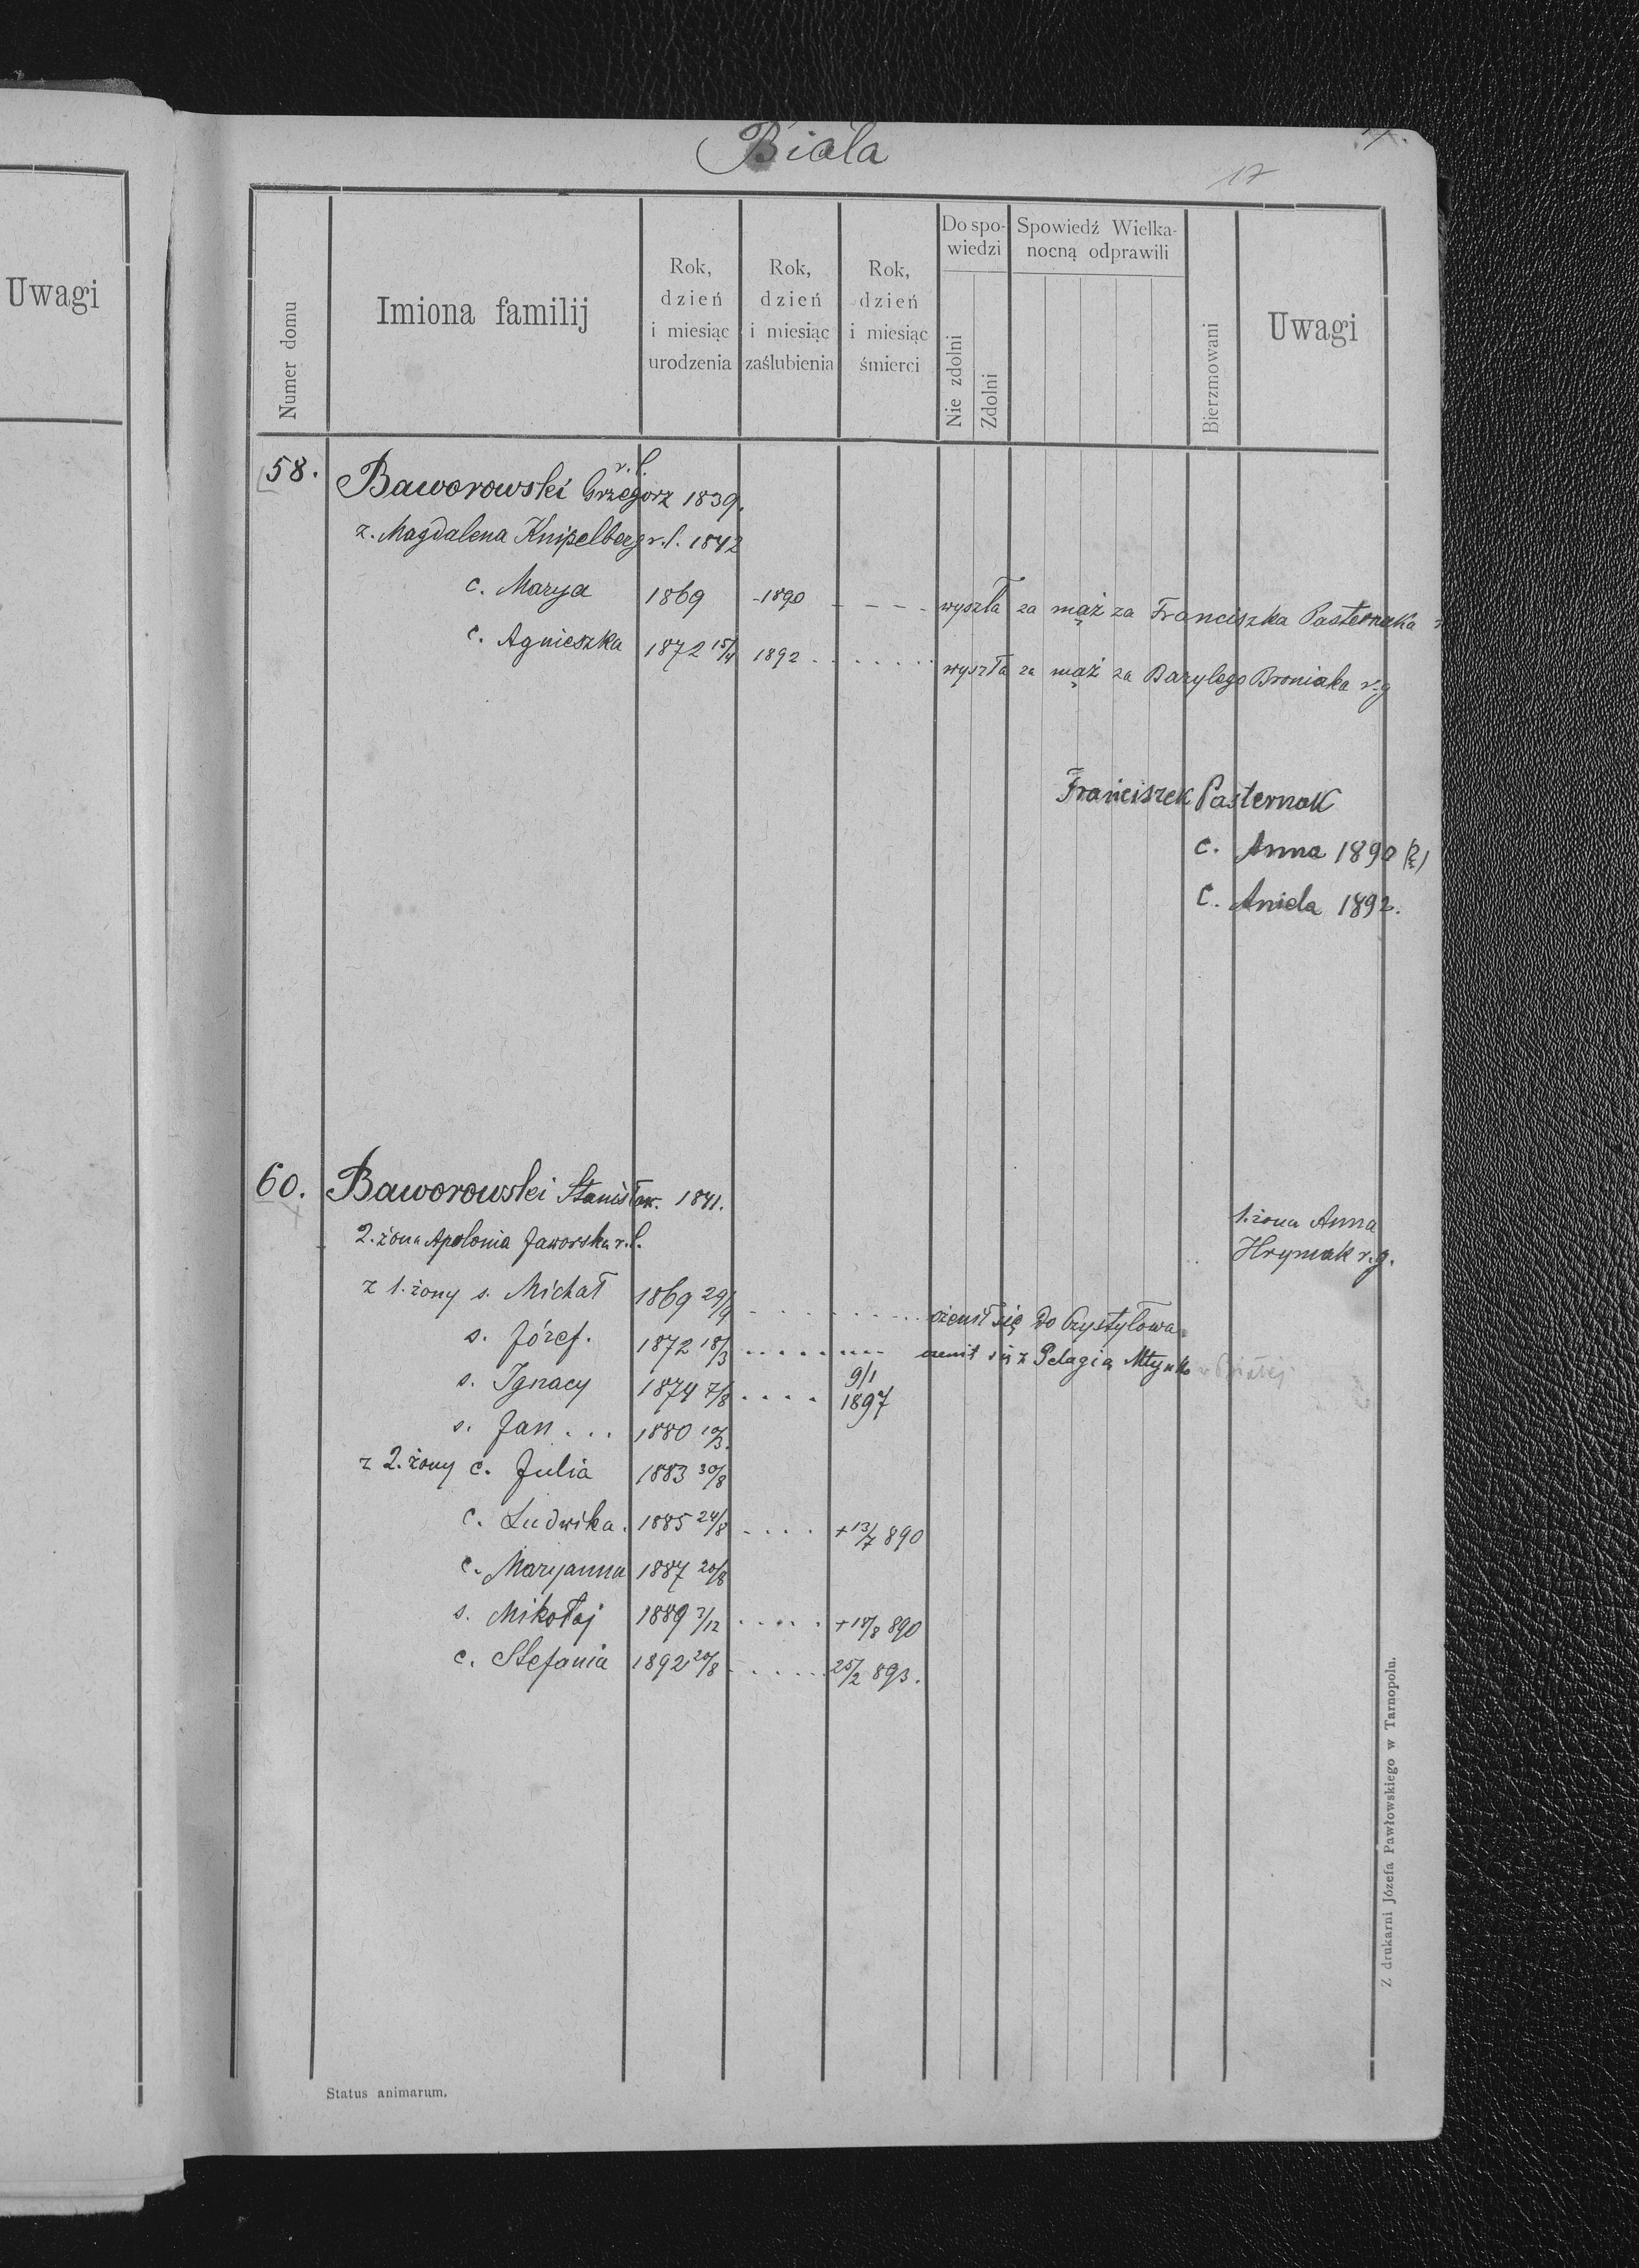 Biała
17
Uwagi
Numer domu
Imiona familij
Rok, dzień i miesiąc urodzenia
Rok, dzień i miesiąc zaślubienia
Rok, dzień i miesiąc śmierci
Do spo-wiedzi
Nie zdolni
Zdolni
Spowiedź Wielka-nocną odprawili
Bierzmowani
Uwagi
58. Baworowski Grzegorz r.l. 1839.
ż. Magdalena Knipelberg r.l. 1842
c. Marya 1869 -1890 - - - - wyszła za mąż za Franciszka Pasternaka
c. Agnieszka 1872 15/4 1892 . . . . . . . wyszła za mąż za Bazylego Broniaka r.g
Franciszek Pasternak
c. Anna 1890 (?)
C. Aniela 1892.
60. Baworowski Stanisław. 1841.
1. żona Anna
2. żona Apolonia Jaworska r.l.
Hryniak r.g.
z 1. żony s. Michał 1869 29/9 - . . . . . . . . . ożenił się do Czystyłowa
s. Józef. 1872 18/3 . . . . . . . . ożenił się z Pelagią Młynko w Białej
s. Ignacy 1874 7/8 . . . . 9/1 1897
s. Jan . . . 1880 10/3.
z 2. żony c. Julia 1883 30/8
c. Ludwika. 1885 24/8 . . . . + 13/7 890
c. Maryanna 1887 20/8
s. Mikołaj 1889 3/12 . . . . . + 18/8 890
c. Stefania 1892 20/8 . . . . . . 25/2 893.
Status animarum.
Z drukarni Józefa Pawłowskiego w Tarnopolu.